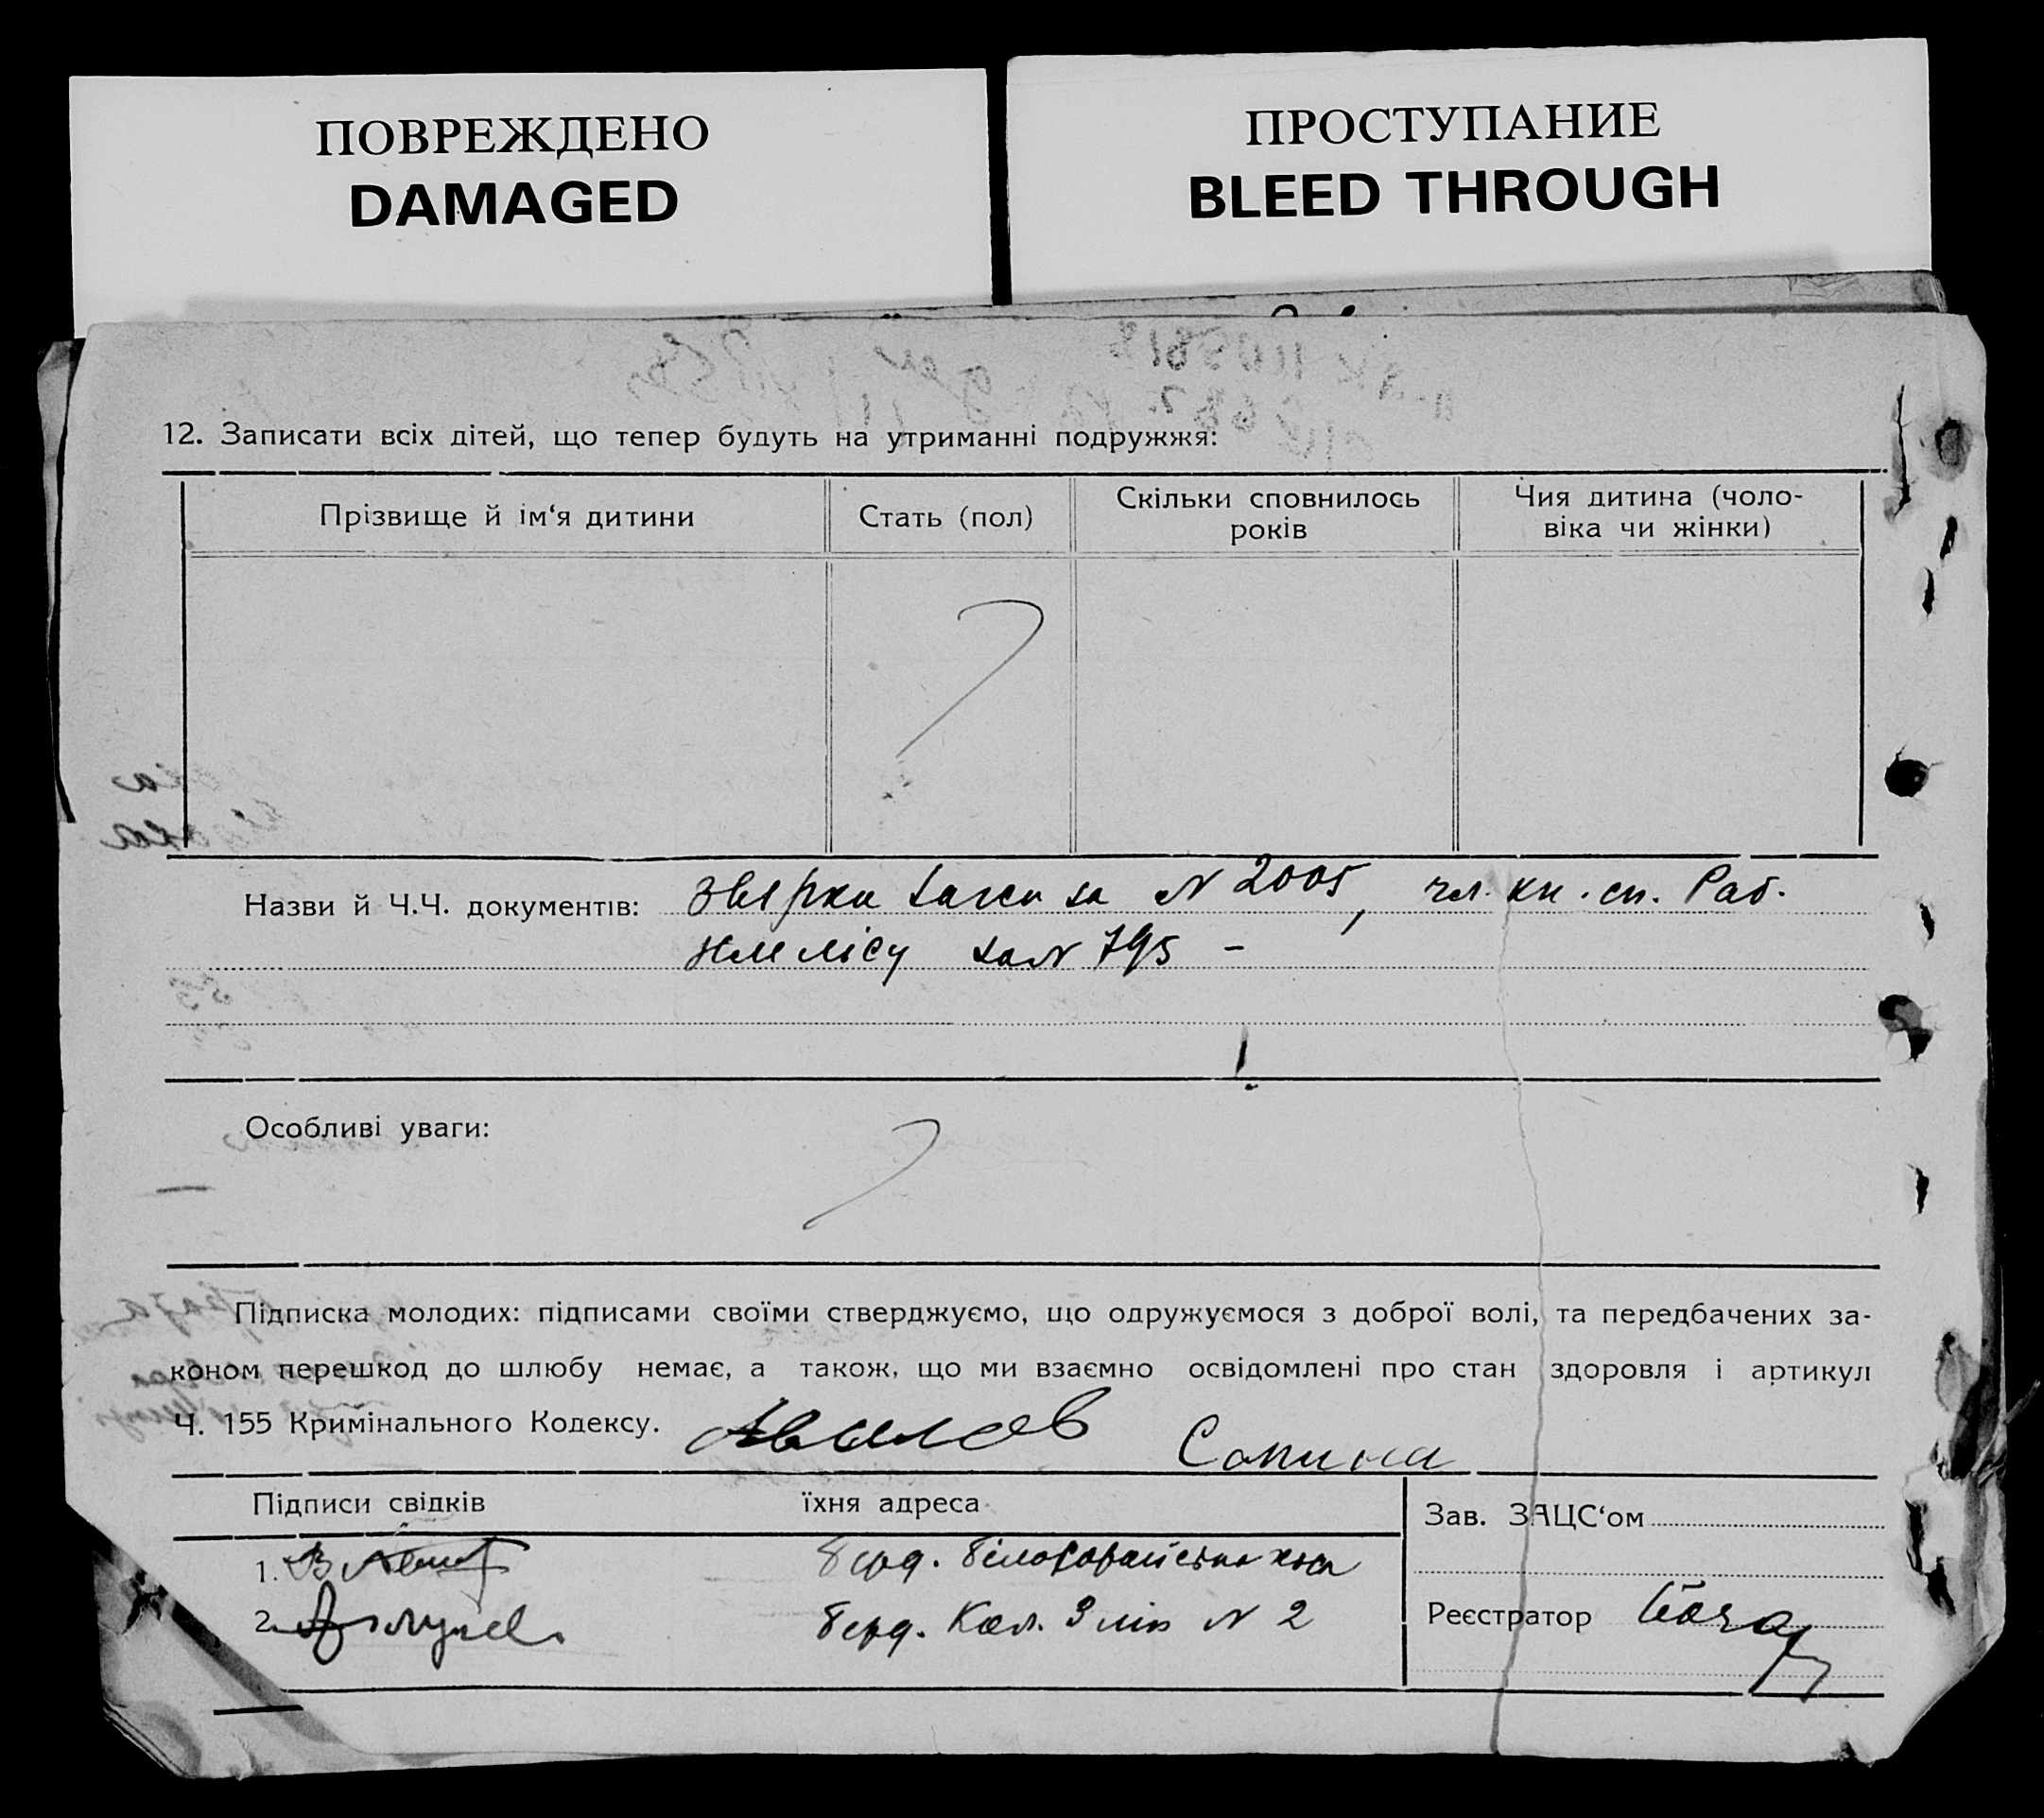 ПОВРЕЖДЕНО
DAMAGED
ПРОСТУПАНИЕ
BLEED THROUGH
12. Записати всіх дітей, що тепер будуть на утриманні подружжя:
Прізвище й ім‘я дитини
Стать (пол)
Скільки сповнилось
років
Чия дитина (чоло-
віка чи жінки)
Назви й Ч.Ч. документів: за N 2005, чл. кн. сп. Раб.
за N 795 –
Особливі уваги:
Підписка молодих: підписами своїми стверджуємо, що одружуємося з доброї волі, та передбачених за-
коном перешкод до шлюбу немає, а також, що ми взаємно освідомлені про стан здоровля і артикул
Ч. 155 Кримінального Кодексу.
Сопина
Підписи свідків
їхня адреса
1. Берд. коса
2. Берд. Кол. 3 лін N 2
Зав. ЗАЦС‘ом
Реєстратор